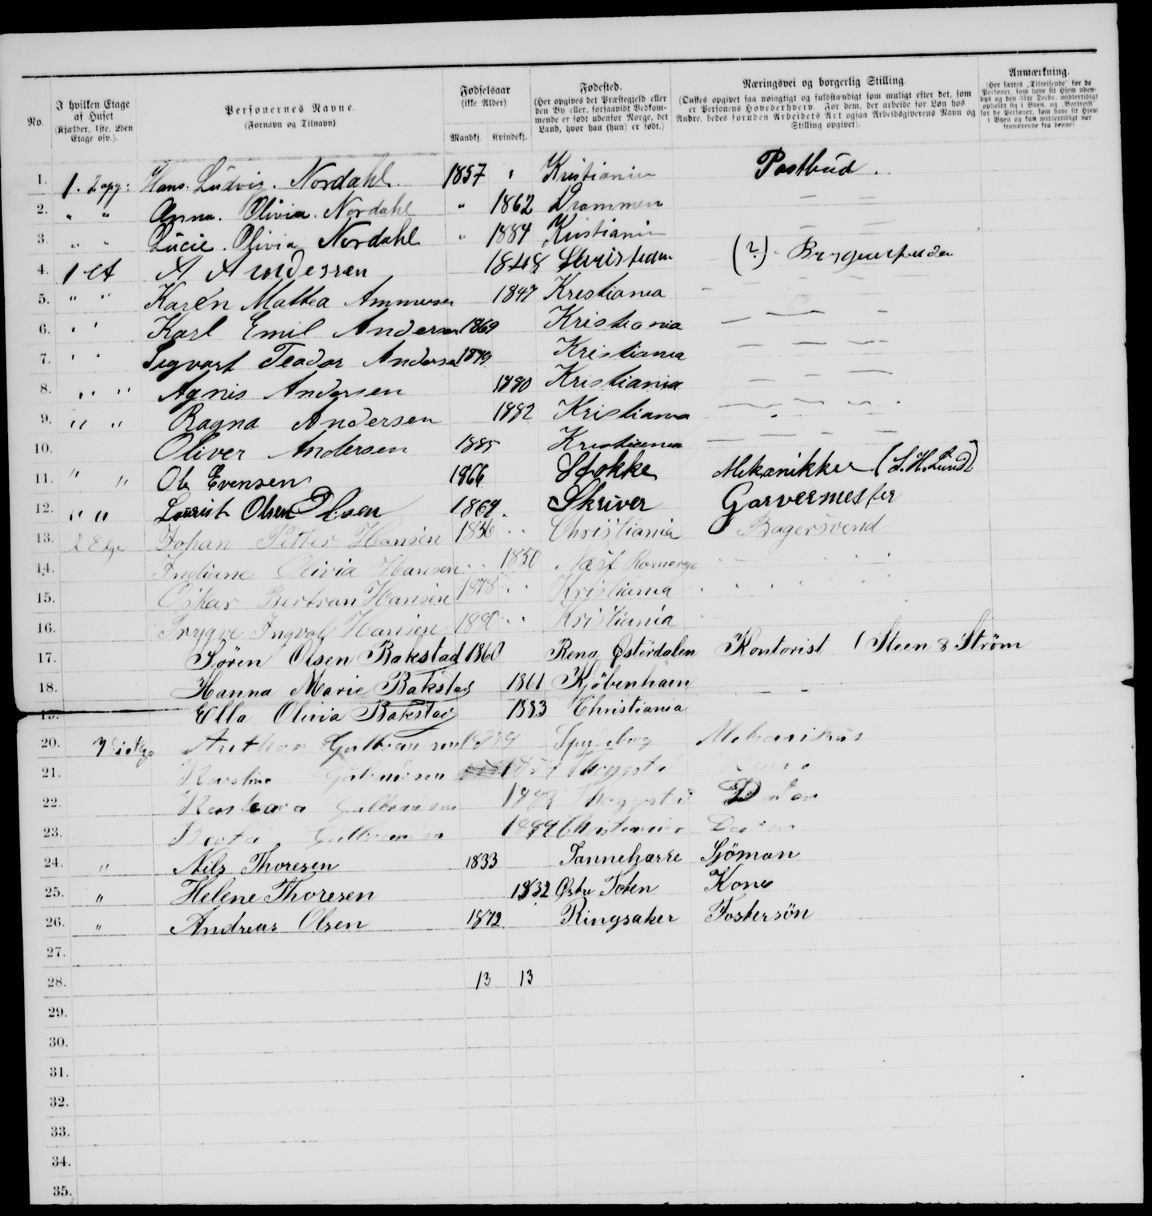 No. I hvilken Etage af Huset (Kjælder, 1ste, 2den Etage osv.). Personernes Navne. (Fornavn og Tilnavn) Fødselsaar (ikke Alder) Mandkj. Kvindekj. Fødested. (Her opgives det Præstegjeld eller den By eller, forsaavidt Vedkommende er født udenfor Norge, det Land, hvor han (hun) er født.) Næringsvei og borgerlig Stilling. (Ønskes opgivet saa nøiagtigt og fuldstændigt som muligt efter det, som er Personens Hovederhverv. For dem, der arbeide for Løn hos Andre, bedes foruden Arbeidets Art ogsaa Arbeidsgiverens Navn og Stilling opgivet). Anmærkning.
1. 1. 2 opg: Hans. Ludvig. Nordahl. 1857 " Kristiania Postbud.
2. " " Anna. Olivia. Nordahl " 1862 Drammen — —
3. " " Lucie. Olivia Nordahl " 1884 Kristiania — —
4. 1 et A Andersen 1848 (?)
5. " " Karen Mathea 1847 Kristiania —
6. " " Karl Emil Andersen 1869 Kristiania — — — —
7. " " Sigvart Teodor Andersen 1879 Kristiania — — — —
8. " " Agnis Andersen 1880 Kristiania — — — —
9. " " Ragna Andersen 1882 Kristiania
10. Oliver Andersen 1885 Kristiania — — — —
11. " " Ole Evensen 1866 Stokke Mekanikker (S. H. Lund)
12. " " Laurit Olsen Olsen 1869. Skriver Garvermester
13. 2 Etge Johan Petter Hansen 1856 " Christiania Bagersvend
14. Indiane Olivia Hansen " 1850 Næs Romerge
15. Oskar Bertran Hansen 1878 " Kristiania
16. Trygve Ingvald Hansen 1880 " Kristiania
17. Søren Olsen Bakstad 1860 Rena Østerdalen Kontorist (Steen & Strøm
18. Hanna Marie Bakstad 1861 Kjøbenhavn — —
19. Ella Olivia Bakstad 1883 Christiania
20. Anthon Gulbransen Mekanikus
21. Karoline Gulbransen Kone
22. Gulbransen Datter
23. Gulbransen 1884 Christiania Datter
24. " Nils Thoresen 1833 Sjöman
25. " Helene Thoresen 1832 Østre Toten Kone
26. " Andreas Olsen 1872 Ringsaker Fostersøn
27.
28. 13 13
29.
30.
31.
32.
33.
34.
35.